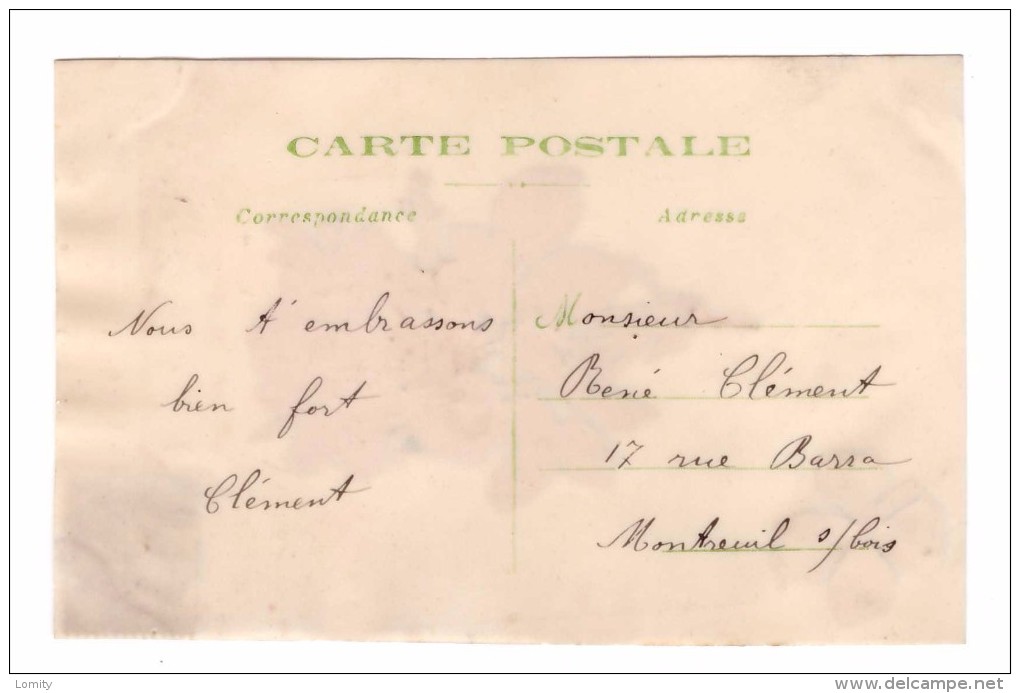 CARTE POSTALE
Correspondance
Adresse
Nous t'embrassons
bien fort
Clément
Monsieur
René Clément
17 rue Barra
Montreuil s/bois
Lomity
www.delcampe.net